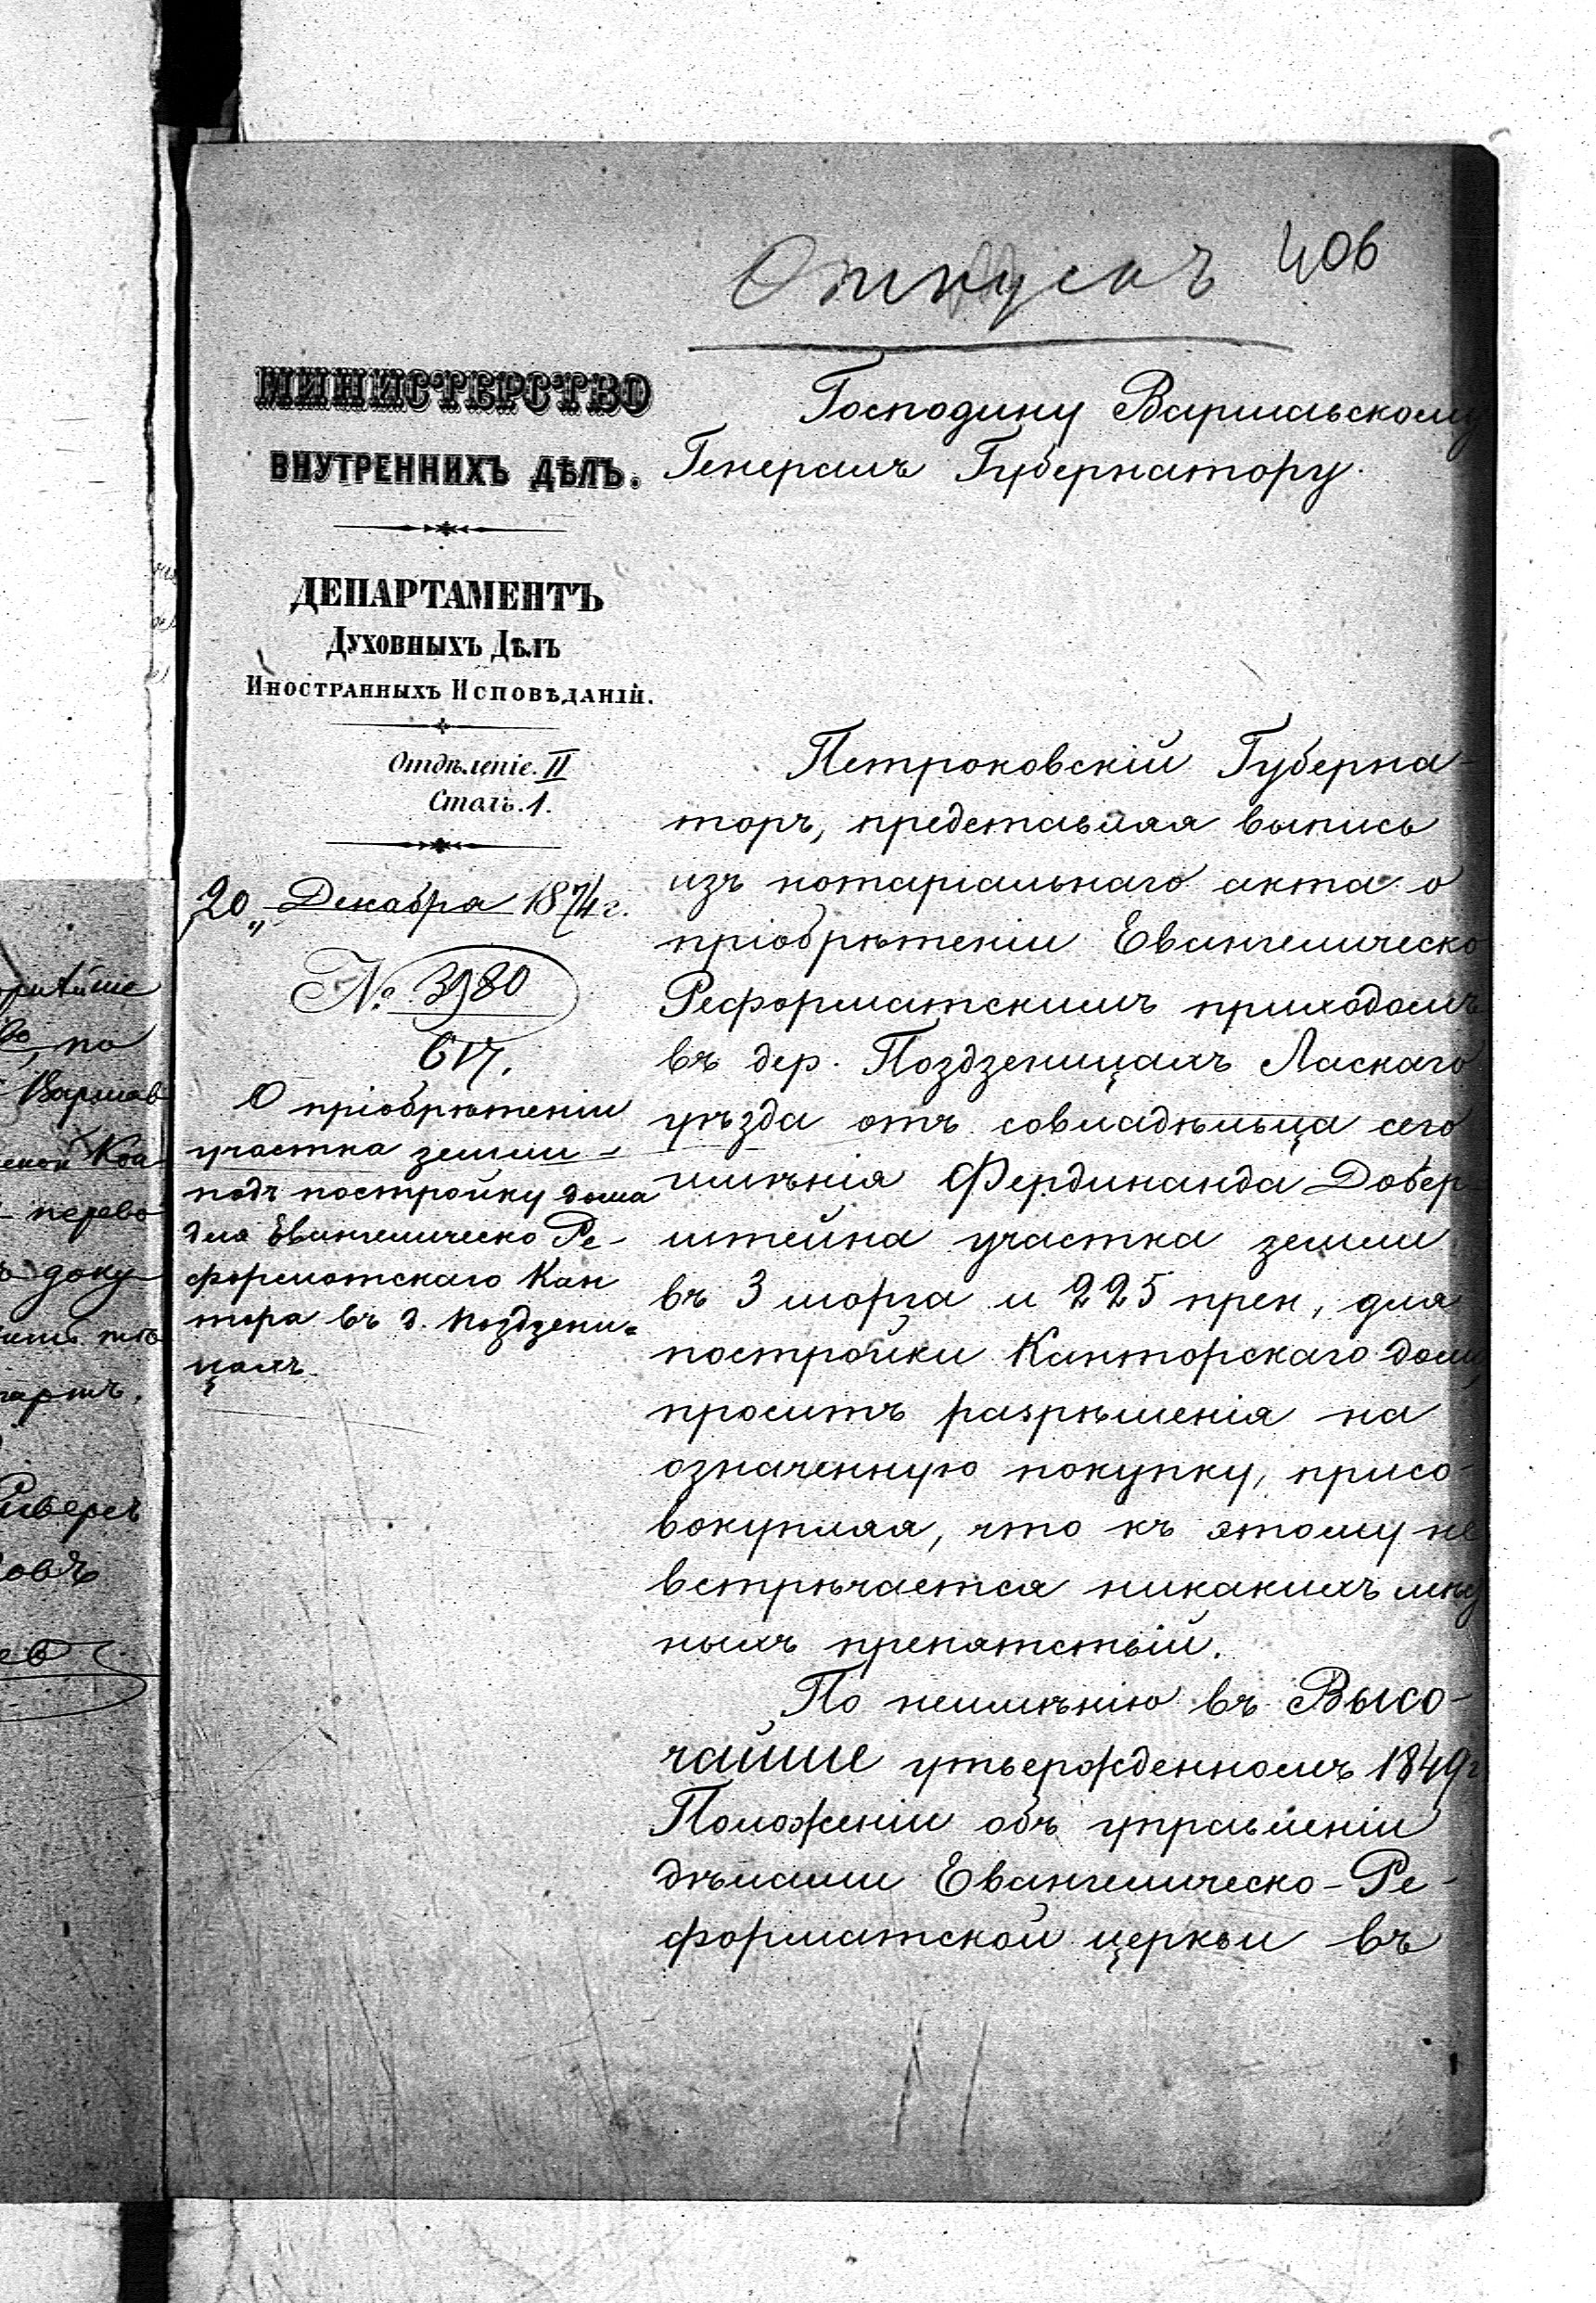 Отпускъ
406
МИНИСТЕРСТВО
ВНУТРЕННИХЪ ДѢЛЪ.
ДЕПАРТАМЕНТЪ
Духовныхъ Дѣлъ
Иностранныхъ Исповѣданій.
Отдѣленіе. II
Столъ. 1.
„20„ Декабря 1874 г.
№ 3980
617.
О пріобрѣтеніи
участка земли
подъ постройку дома
для Евангелическо Ре-
форматскаго Кан
тора въ д. Поздзени-
цахъ.
Господину Варшавскому
Генералъ Губернатору.
Петроковскій Губерна-
торъ, представляя выпись
изъ нотаріальнаго акта о
пріобрѣтеніи Евангелическо
Реформатскимъ приходомъ
въ дер. Поздзеницахъ Ласкаго
уѣзда отъ совладѣльца сего
имѣнія Фердинанда Добер-
штейна участка земли
въ 3 морга и 225 прен, для
постройки Канторскаго дома,
проситъ разрѣшенія на
означенную покупку, присо-
вокупляя, что къ этому не
встрѣчается никакихъ
ныхъ препятствій.
По неимѣнію въ Высо-
чайше утвержденномъ 1849 г
Положеніи объ управленіи
дѣлами Евангелическо-Ре-
форматской церкви въ
по
Варшав
Коа
перево
доку